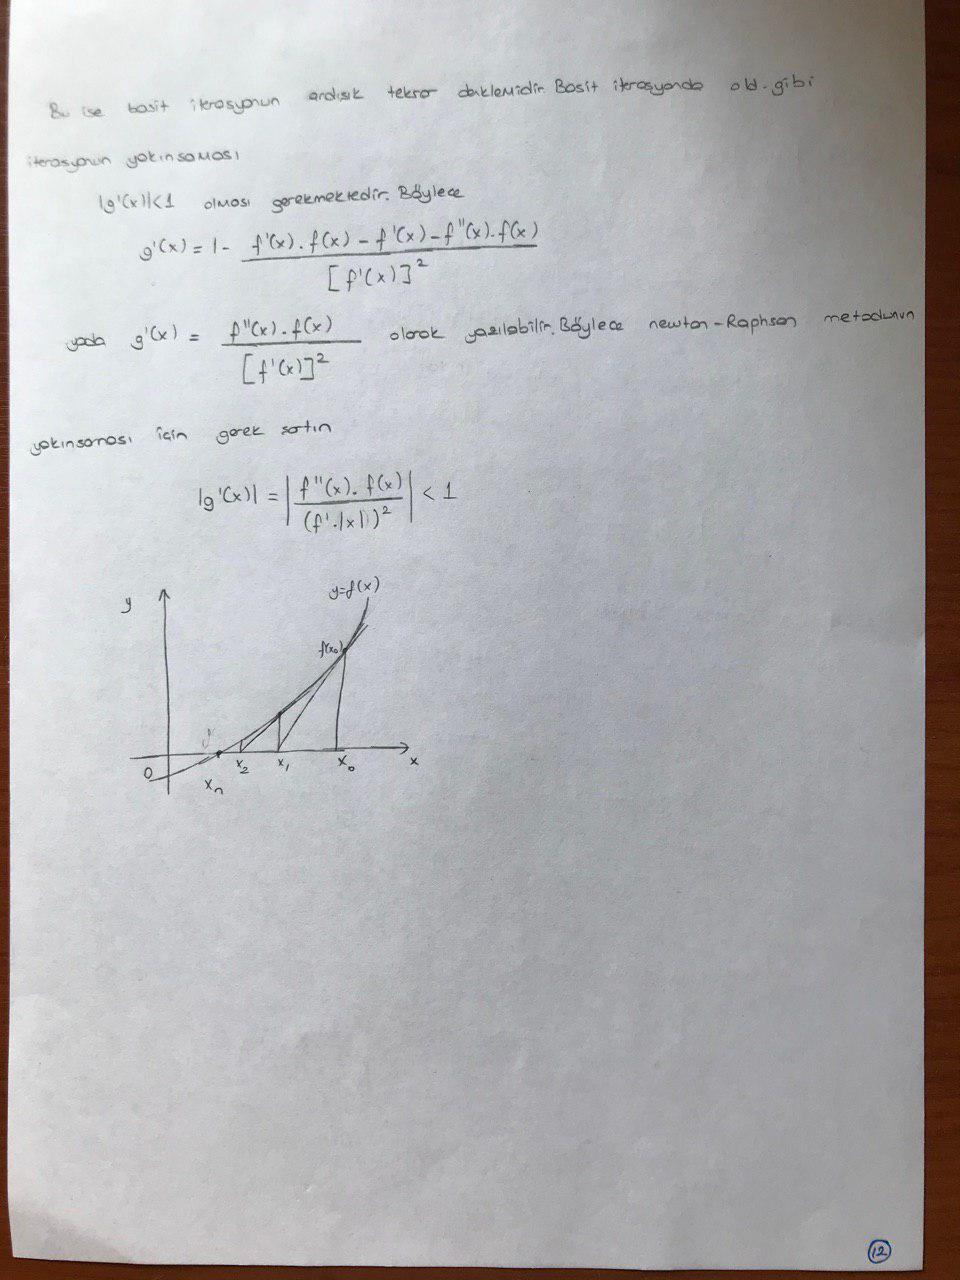 Bu ise basit iterasyonun ardışık tekrar denklemidir. Basit iterasyonda old. gibi
iterasyonun yakınsaması
|g'(x)|<1 olması gerekmektedir. Böylece
g'(x) = 1 - f'(x).f(x) - f'(x) - f''(x).f(x)
[f'(x)]²
yada g'(x) = f''(x).f(x) olarak yazılabilir. Böylece newton-Raphson metodunun
[f'(x)]²
yakınsaması için gerek şartın
|g'(x)| = |f''(x).f(x)| < 1
(f'.|x|)²
y
y=f(x)
f(x₀)
0
x₂ x₁ x₀ x
xₙ
12